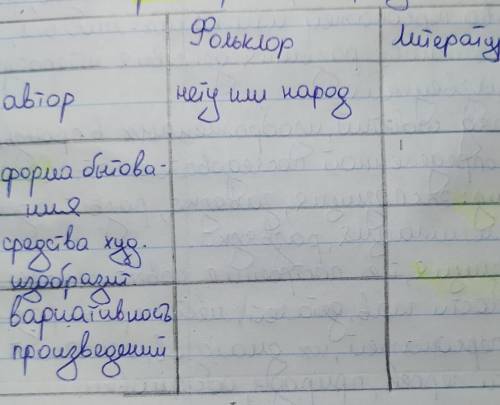 Фольклор Литератур
автор нету или народ
форма бытова-
ния
средства худ.
изобразит
вариативность
произведений